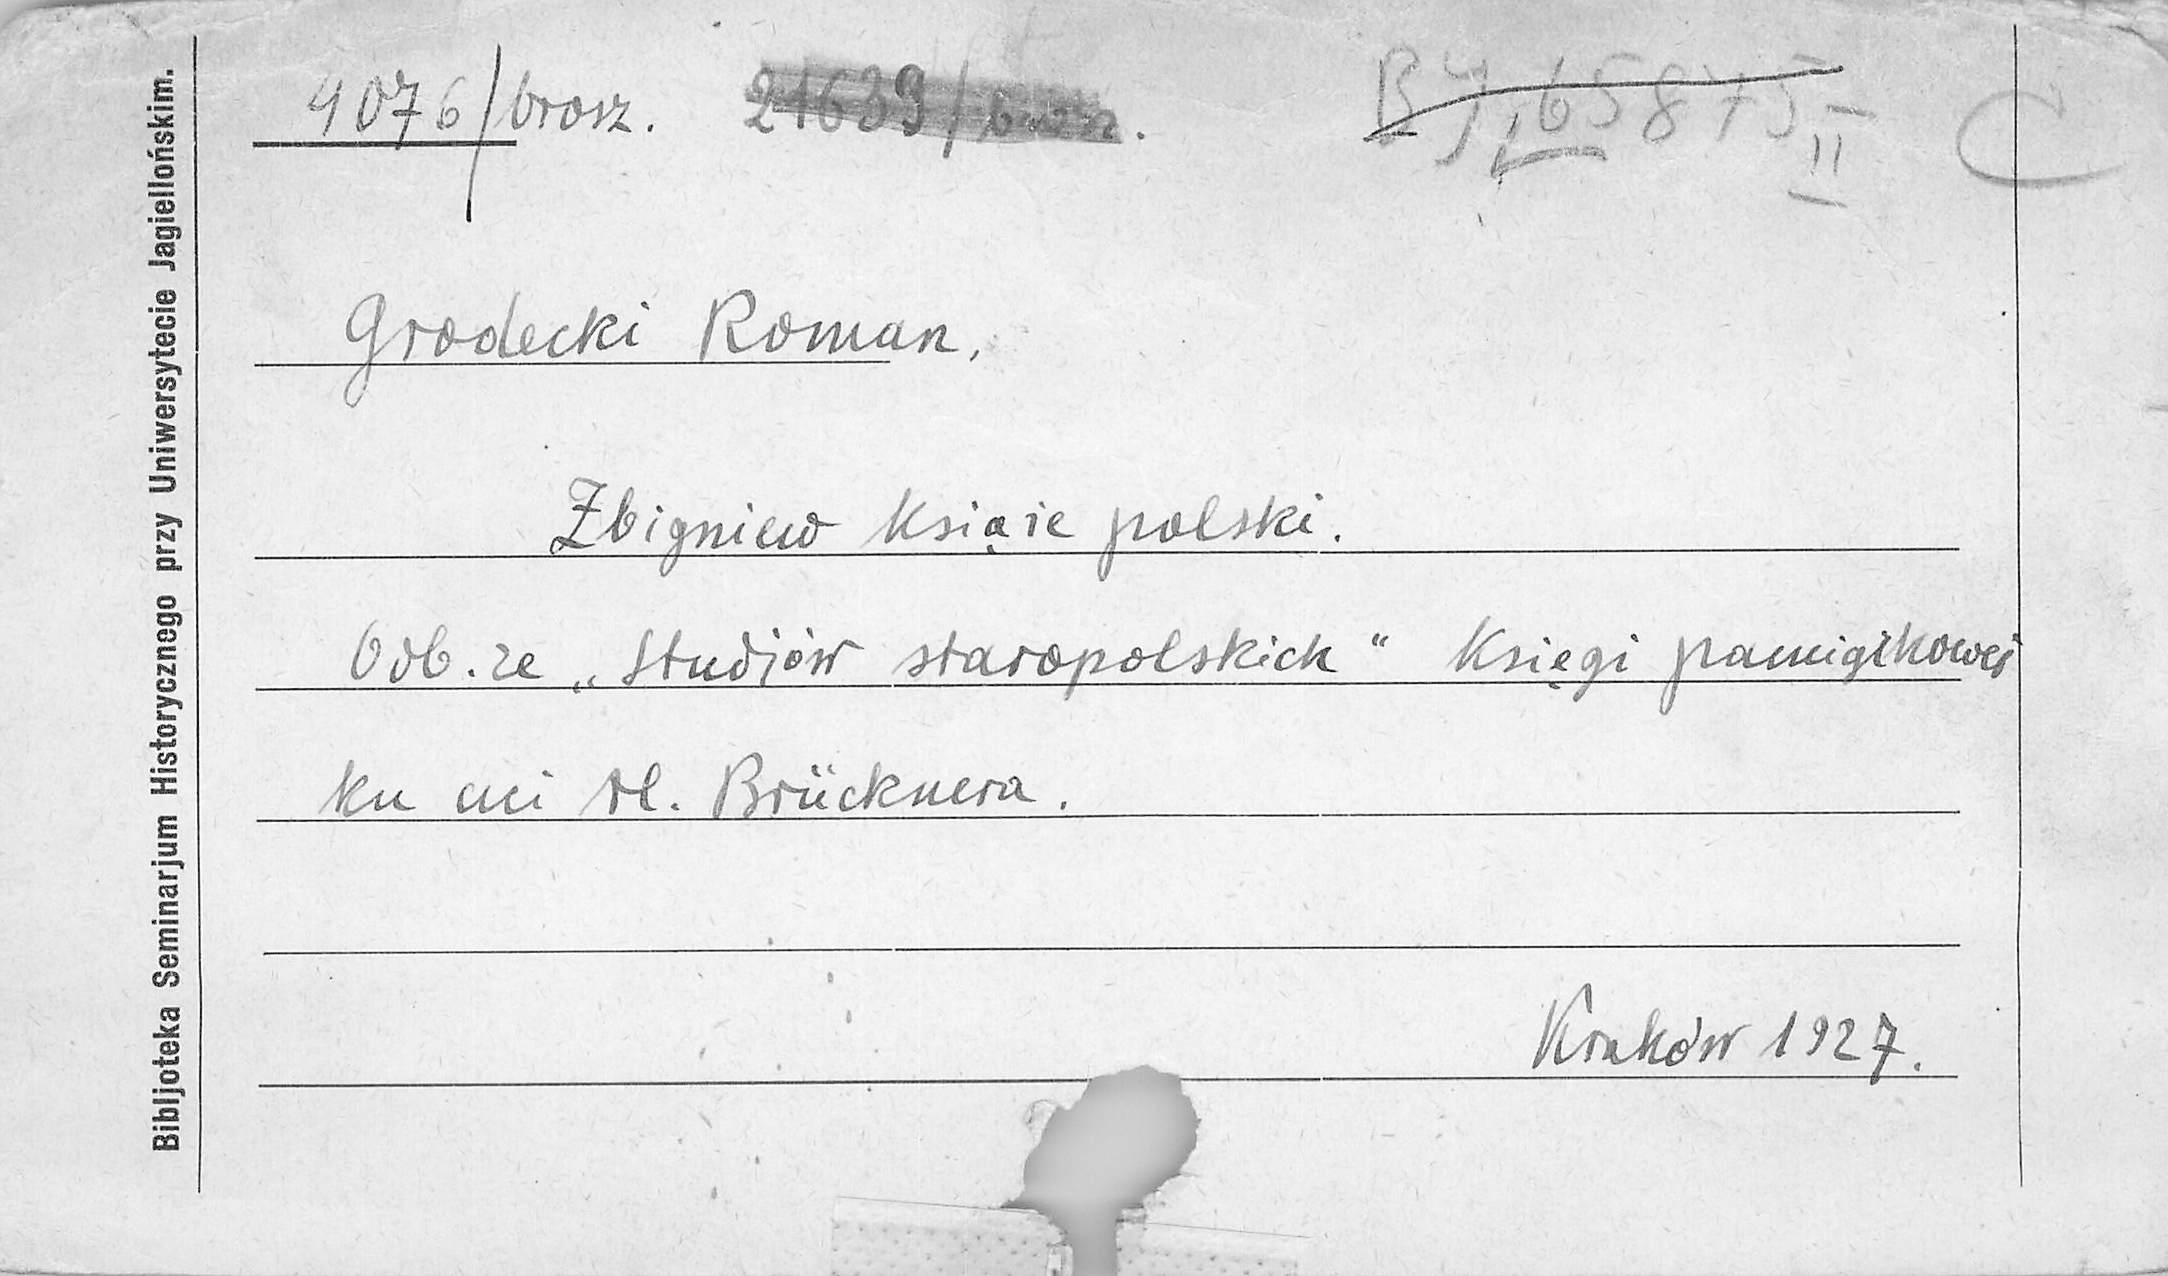 4076/brosz. 21639/brosz. BJ, 65875 II C
Grodecki Roman.
Zbigniew Książe polski.
Odb. ze „Studjów staropolskich" Księgi pamiątkowej
ku czci Al. Brücknera.
Kraków 1927.
Bibljoteka Seminarjum Historycznego przy Uniwersytecie Jagiellońskim.